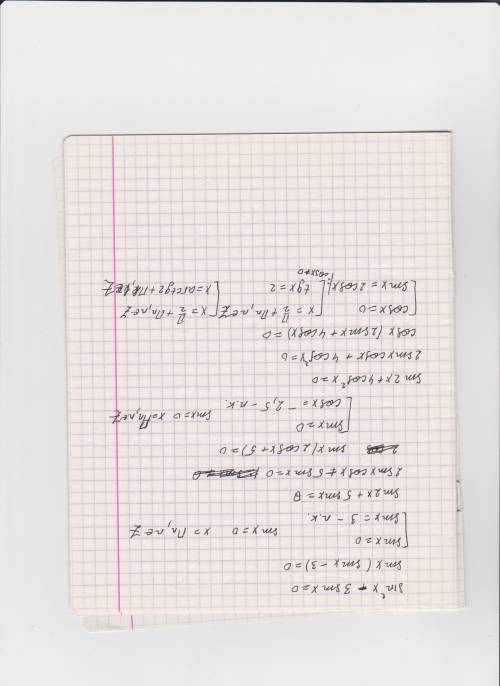 sin²x - 3 sinx = 0
sinx (sinx - 3) = 0
[ sinx = 0
[ sinx = 3 - п.к. sinx = 0 x = Пn, n∈Z
sin2x + 5 sinx = 0
2 sinx cosx + 5 sinx = 0
sinx (2cosx + 5) = 0
[ sinx = 0
[ cosx = -2,5 - п.к. sinx = 0 x = Пn, n∈Z
sin2x + 4cos²x = 0
2 sinx cosx + 4cos²x = 0
cosx (2sinx + 4cosx) = 0
[ cosx = 0 [ x = П/2 + Пn, n∈Z [ x = П/2 + Пn, n∈Z
[ sinx = 2cosx |: cosx≠0 [ tgx = 2 [ x = arctg2 + Пk, k∈Z